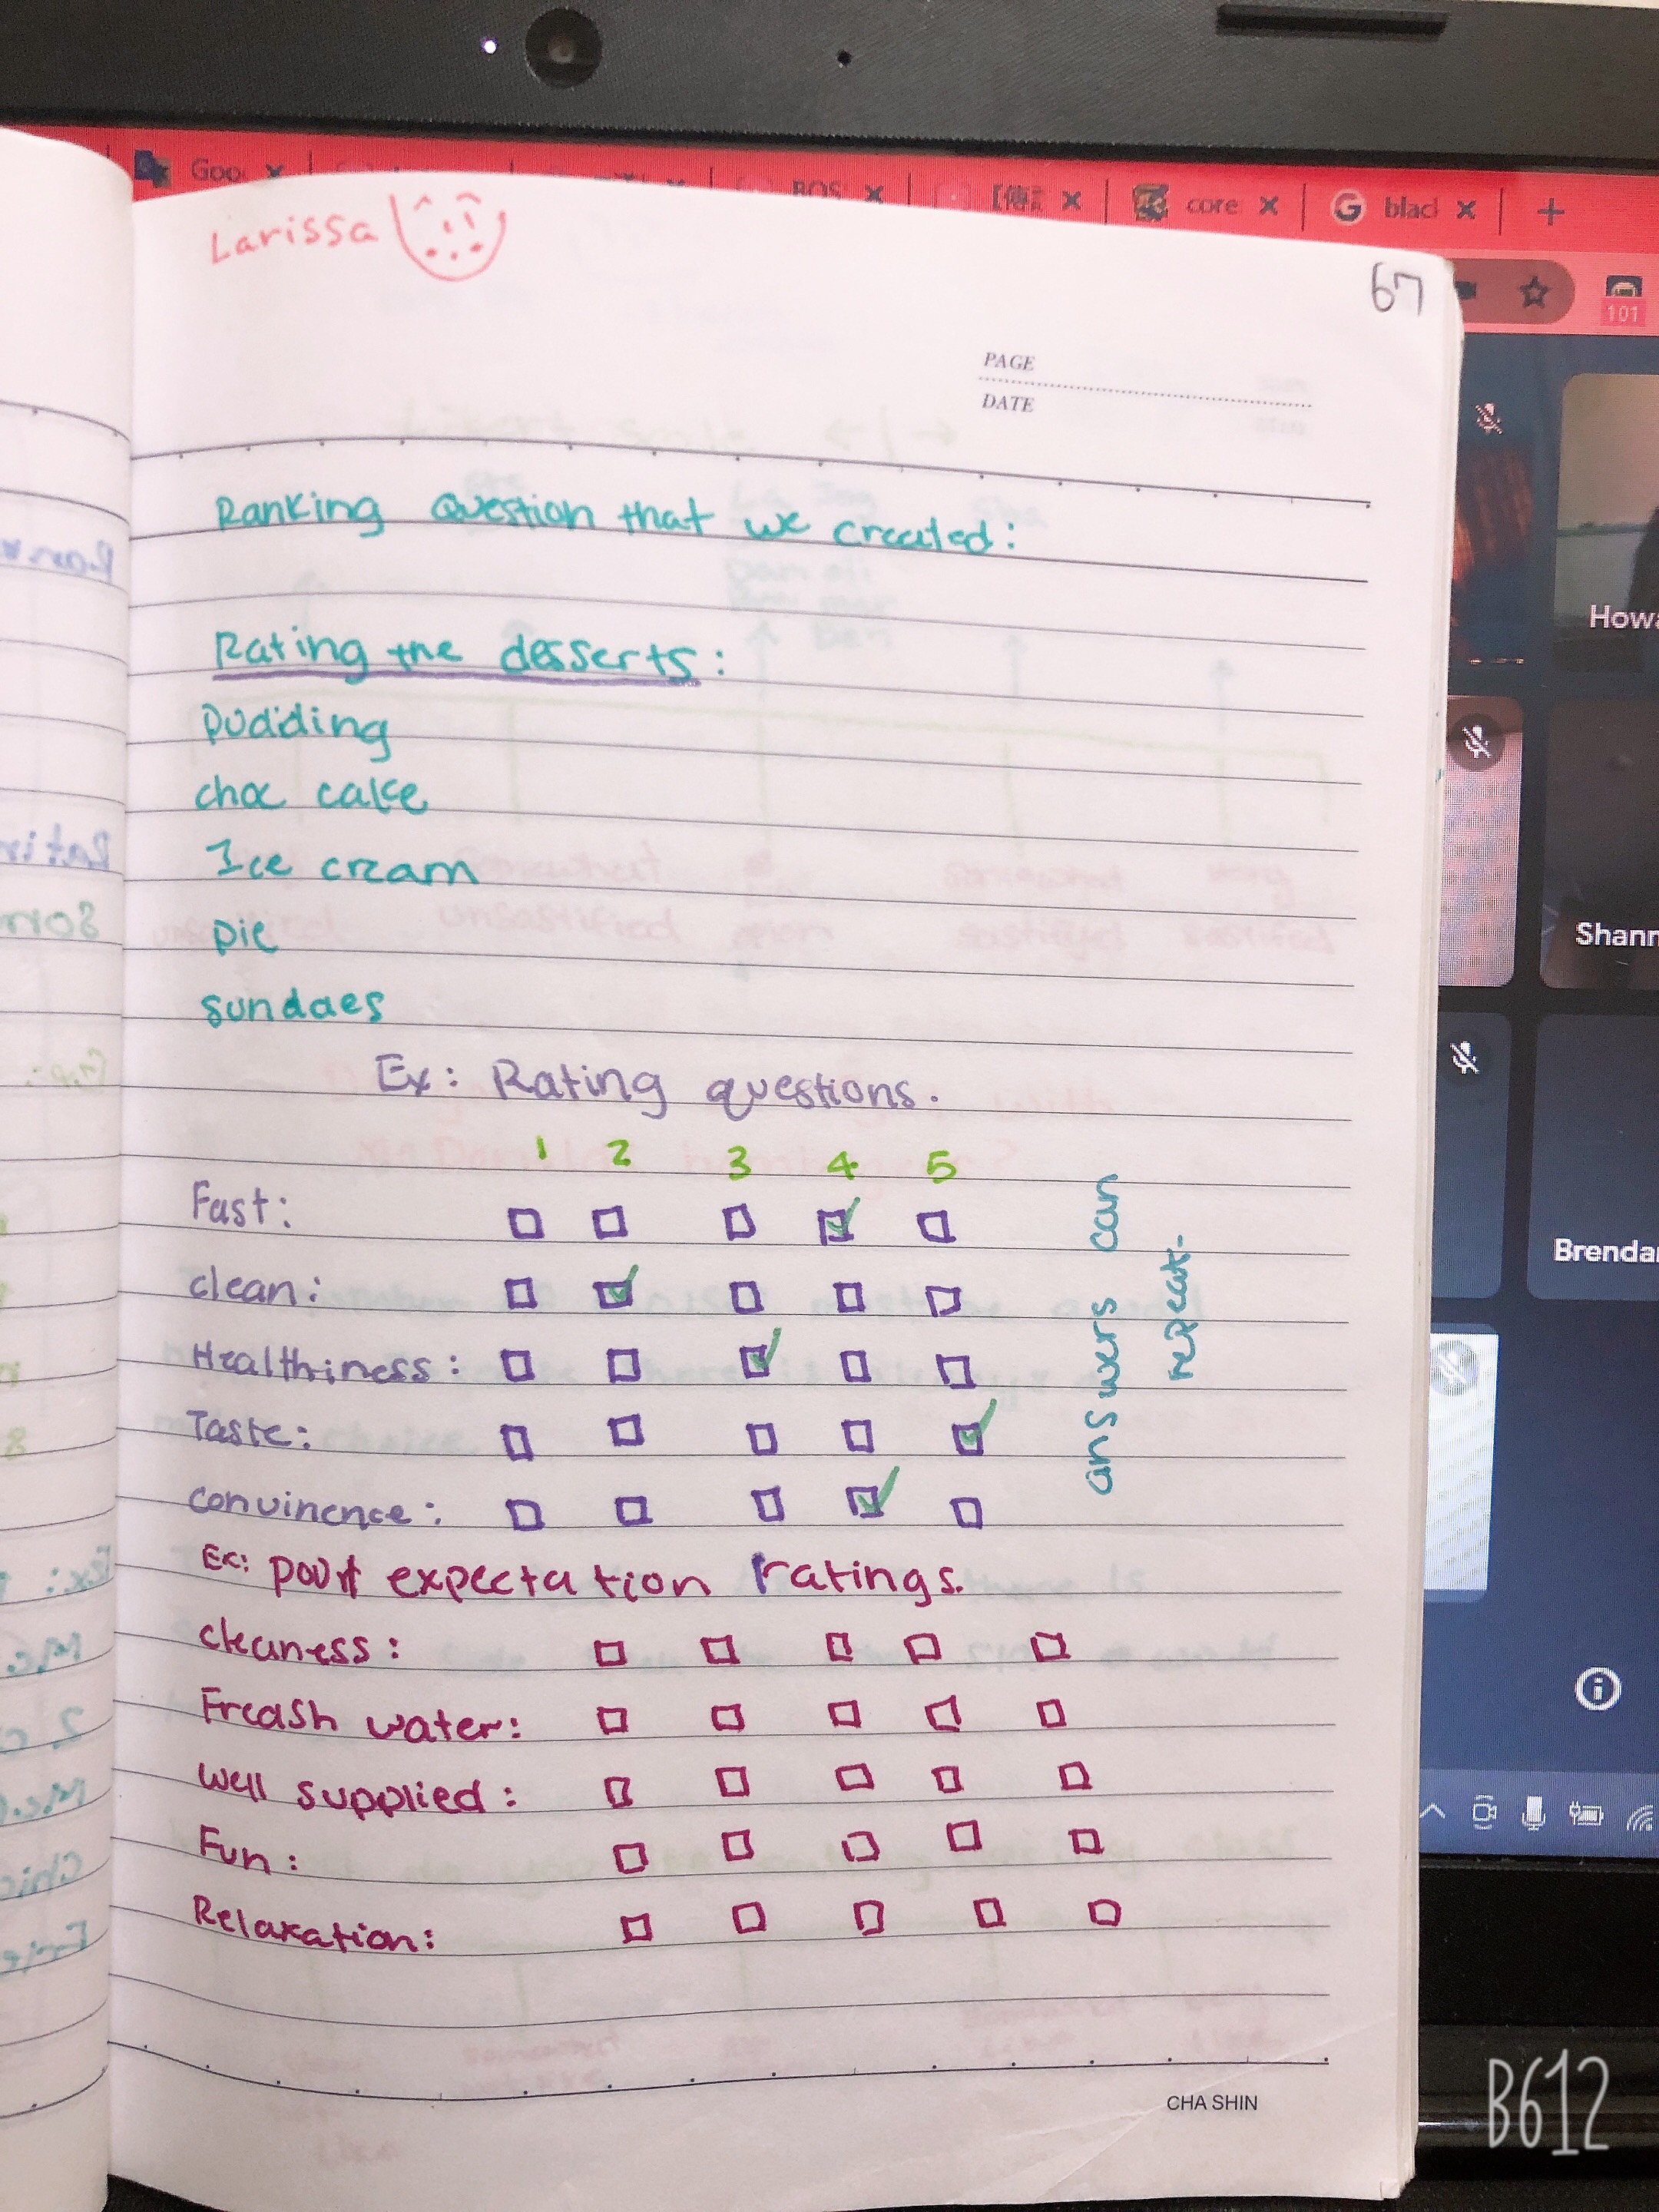 Goo
BOS
core
blacl
101
Larissa
67
PAGE
DATE
Ranking Question that we created:
Rating the desserts:
pudding
choc cake
Ice cream
pie
sundaes
Ex: Rating questions.
1 2 3 4 5
Fast:
clean:
Healthiness:
Taste:
convinence:
answers can
repeat.
Ex: expectation ratings.
cleaness:
Freash water:
well supplied:
Fun:
Relaxation:
CHA SHIN
Howa
Shann
Brendan
B612